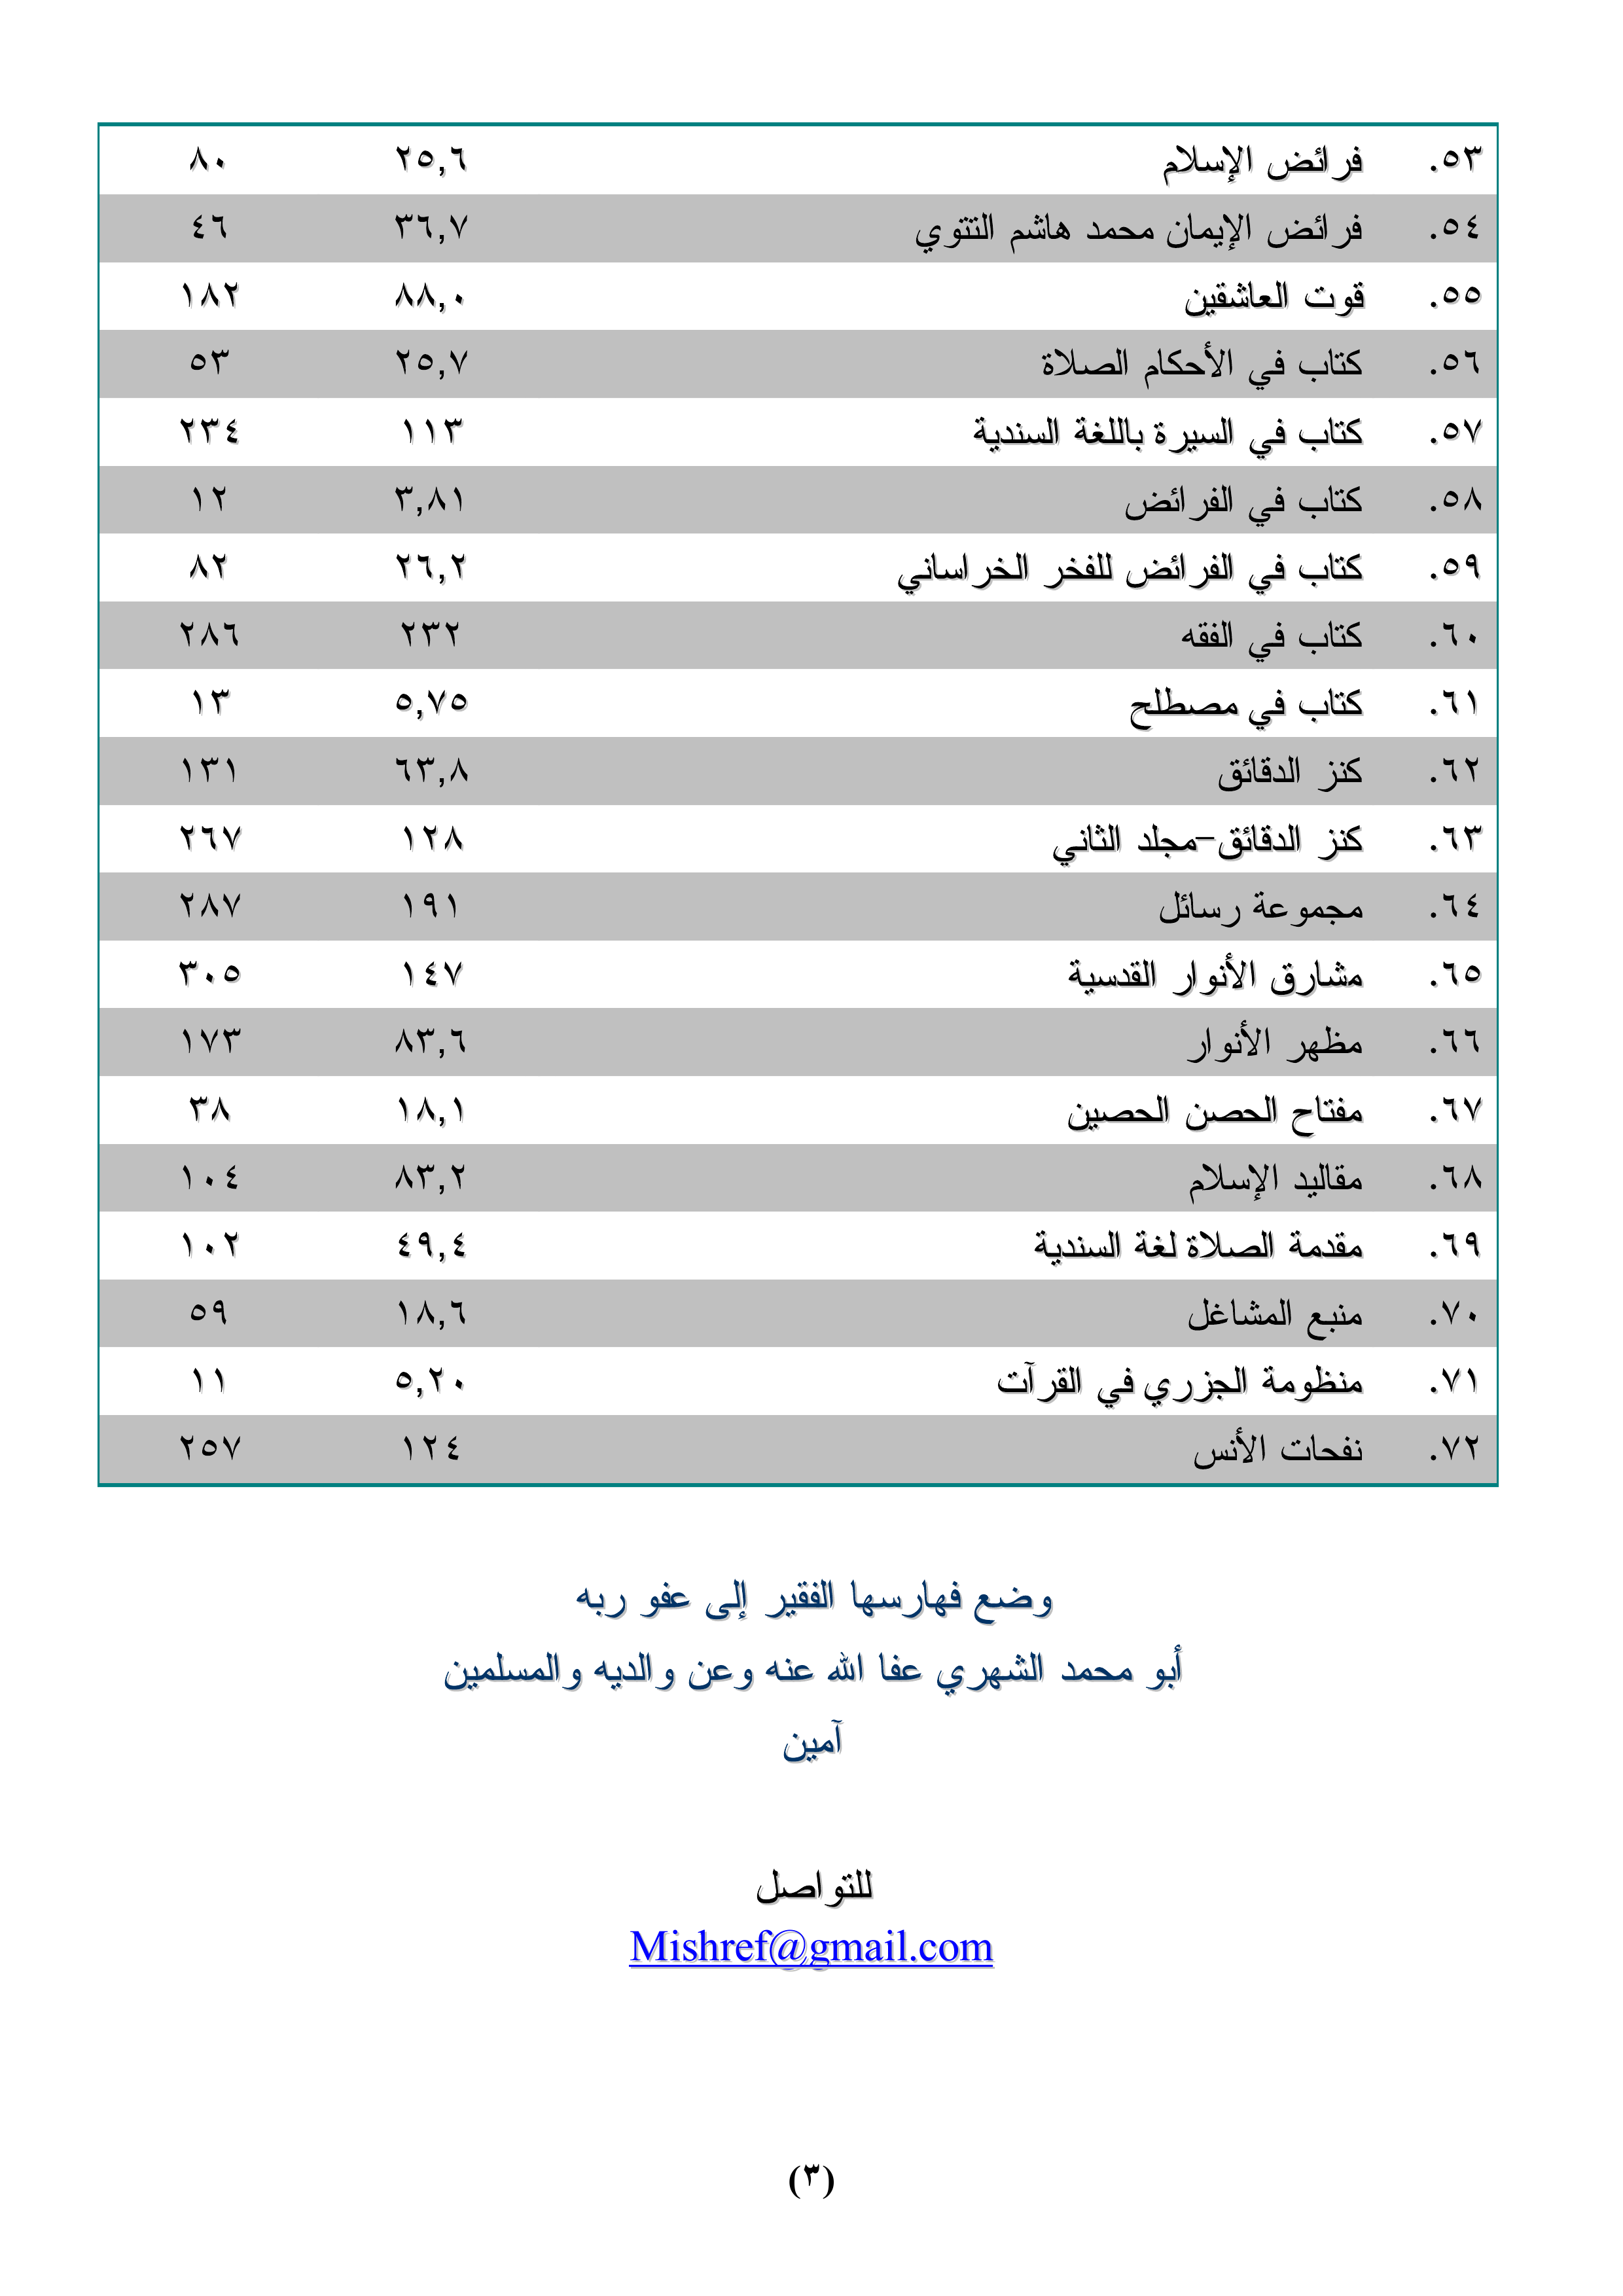 ٥٣. فرائض الإسلام ٢٥,٦ ٨٠
٥٤. فرائض الإيمان محمد هاشم التتوي ٣٦,٧ ٤٦
٥٥. قوت العاشقين ٨٨,٠ ١٨٢
٥٦. كتاب في الأحكام الصلاة ٢٥,٧ ٥٣
٥٧. كتاب في السيرة باللغة السندية ١١٣ ٢٣٤
٥٨. كتاب في الفرائض ٣,٨١ ١٢
٥٩. كتاب في الفرائض للفخر الخراساني ٢٦,٢ ٨٢
٦٠. كتاب في الفقه ٢٣٢ ٢٨٦
٦١. كتاب في مصطلح ٥,٧٥ ١٣
٦٢. كنز الدقائق ٦٣,٨ ١٣١
٦٣. كنز الدقائق-مجلد الثاني ١٢٨ ٢٦٧
٦٤. مجموعة رسائل ١٩١ ٢٨٧
٦٥. مشارق الأنوار القدسية ١٤٧ ٣٠٥
٦٦. مظهر الأنوار ٨٣,٦ ١٧٣
٦٧. مفتاح الحصن الحصين ١٨,١ ٣٨
٦٨. مقاليد الإسلام ٨٣,٢ ١٠٤
٦٩. مقدمة الصلاة لغة السندية ٤٩,٤ ١٠٢
٧٠. منبع المشاغل ١٨,٦ ٥٩
٧١. منظومة الجزري في القرآت ٥,٢٠ ١١
٧٢. نفحات الأنس ١٢٤ ٢٥٧
وضع فهارسها الفقير إلى عفو ربه
أبو محمد الشهري عفا الله عنه وعن والديه والمسلمين
آمين
للتواصل
Mishref@gmail.com
(٣)